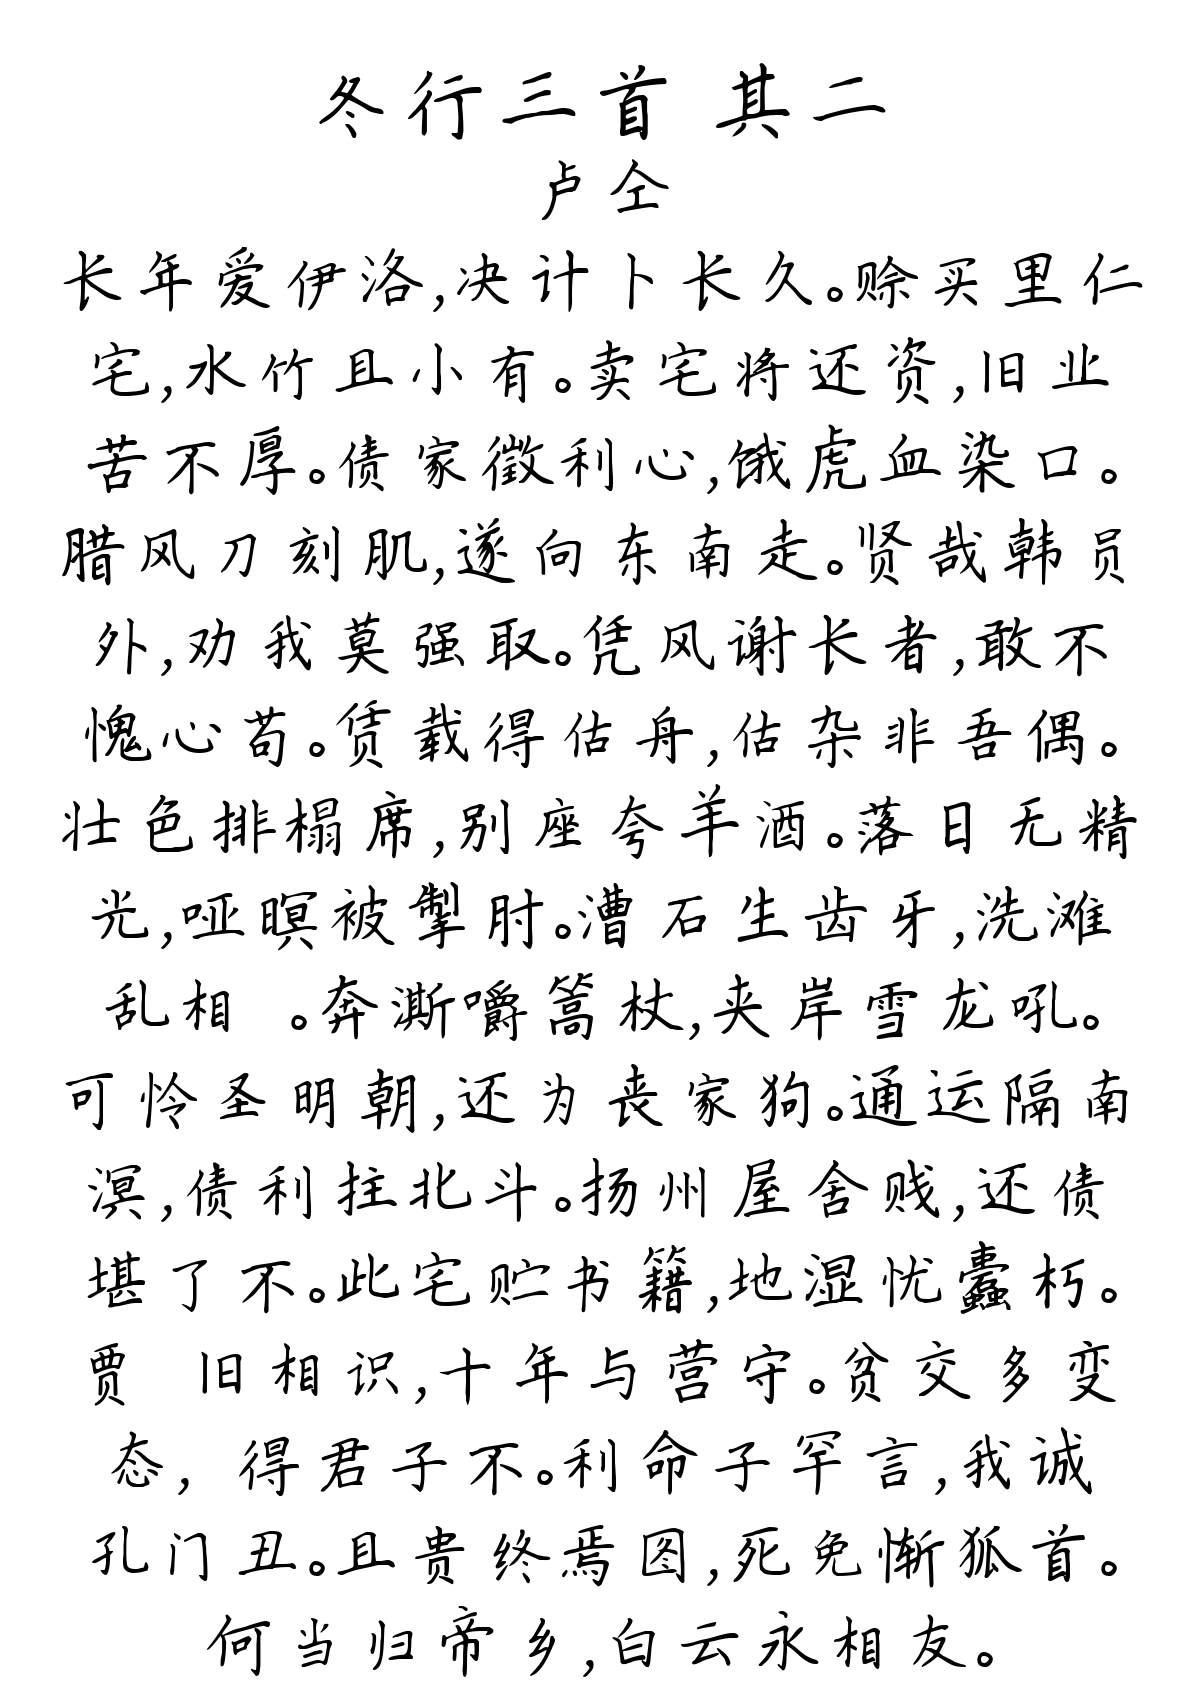 冬行三首 其二
卢仝
长年爱伊洛,决计卜长久。赊买里仁
宅,水竹且小有。卖宅将还资,旧业
苦不厚。债家徵利心,饿虎血染口。
腊风刀刻肌,遂向东南走。贤哉韩员
外,劝我莫强取。凭风谢长者,敢不
愧心苟。赁载得估舟,估杂非吾偶。
壮色排榻席,别座夸羊酒。落日无精
光,哑瞑被掣肘。漕石生齿牙,洗滩
乱相 。奔澌嚼篙杖,夹岸雪龙吼。
可怜圣明朝,还为丧家狗。通运隔南
溟,债利拄北斗。扬州屋舍贱,还债
堪了不。此宅贮书籍,地湿忧蠹朽。
贾 旧相识,十年与营守。贫交多变
态, 得君子不。利命子罕言,我诚
孔门丑。且贵终焉图,死免惭狐首。
何当归帝乡,白云永相友。